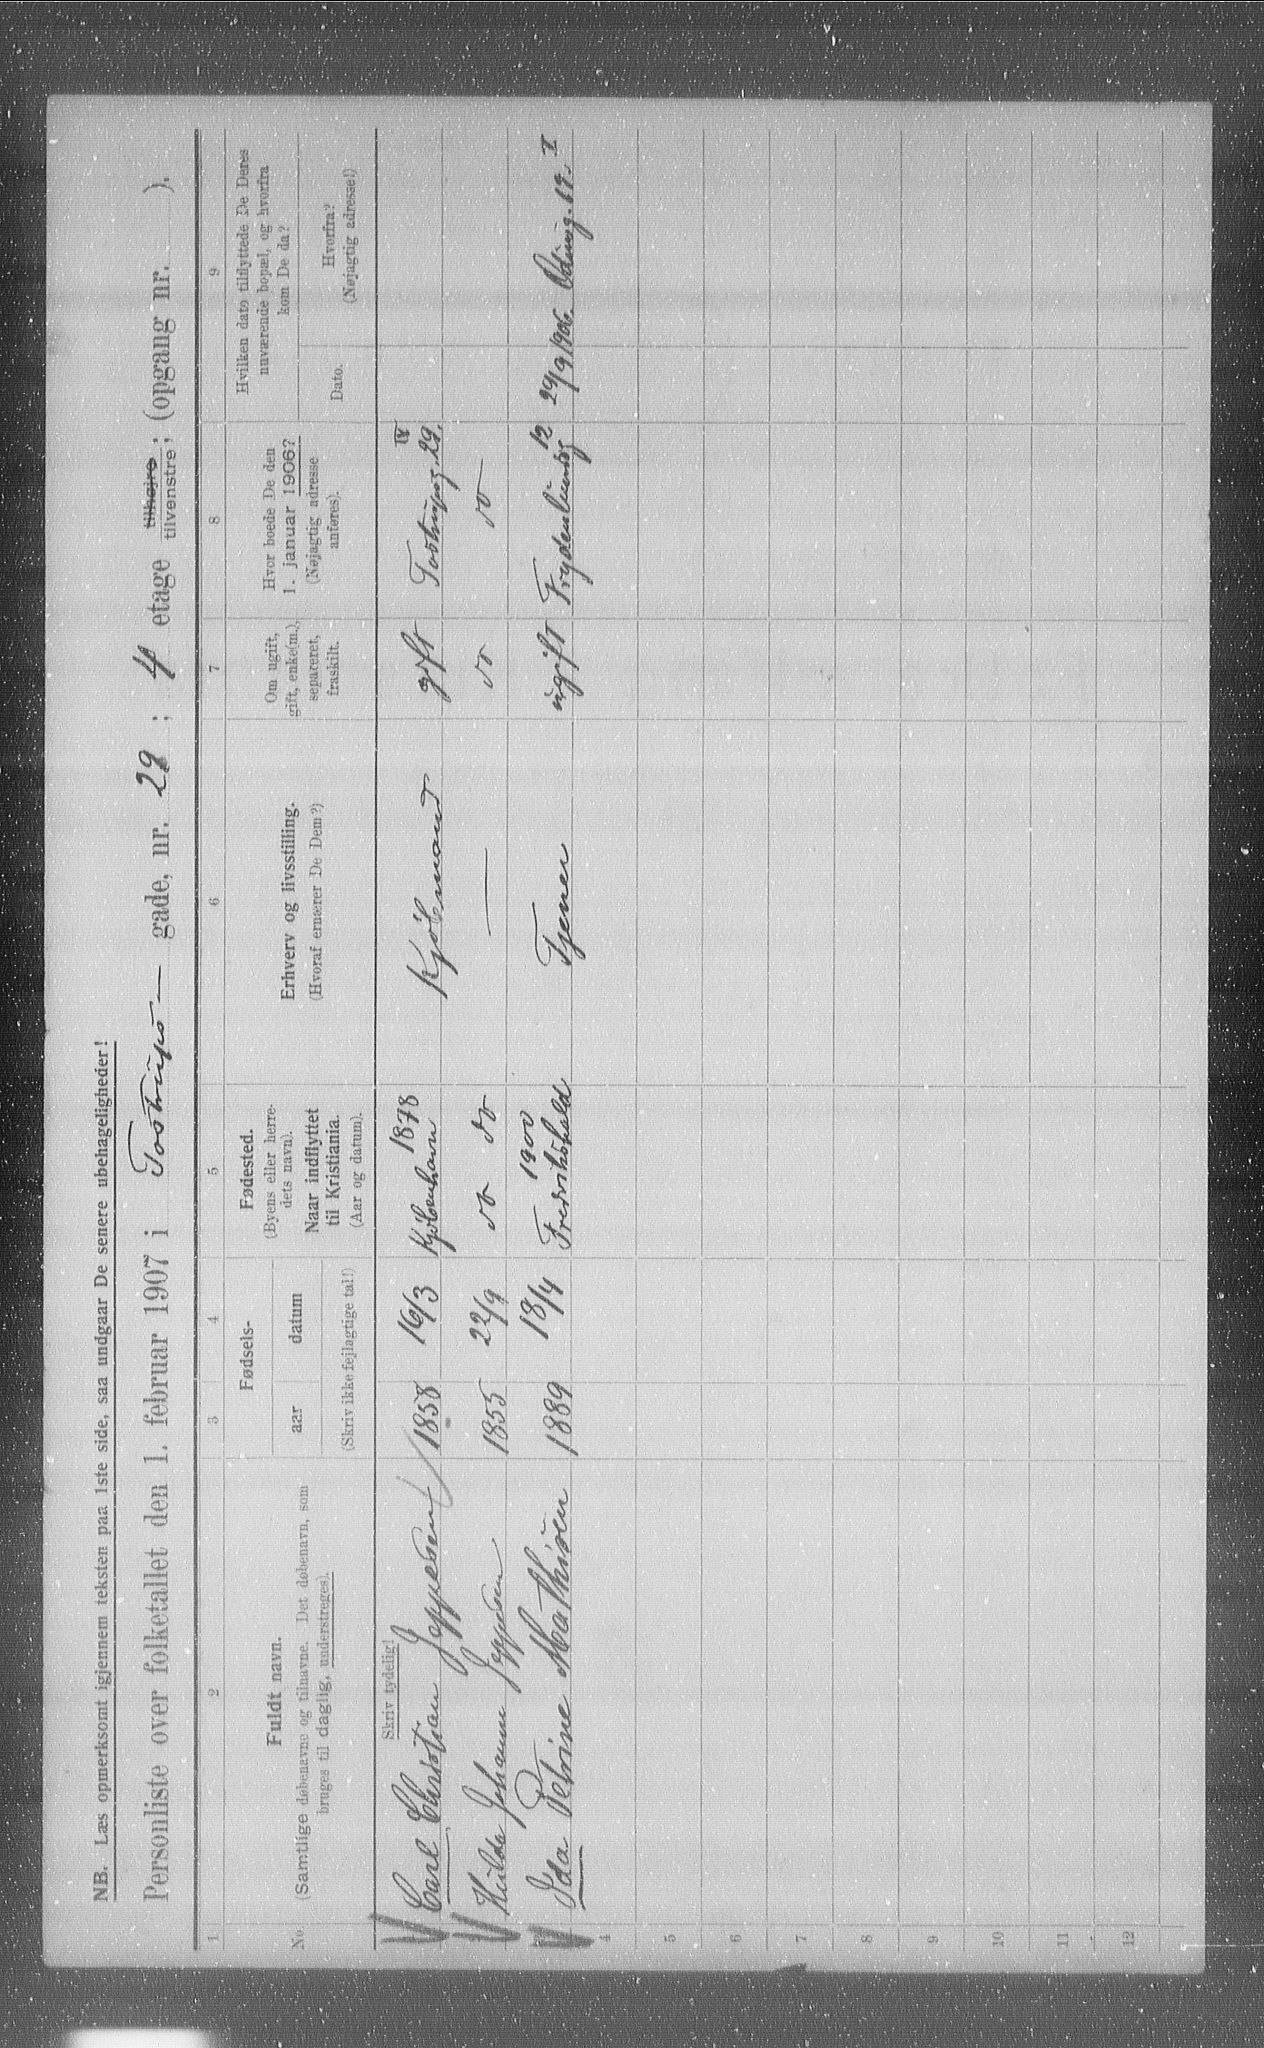 NB. Læs opmerksomt igjennem teksten paa 1ste side, saa undgaar De senere ubehageligheder!
Personliste over folketallet den 1. februar 1907 i Tostrups — gade, nr. 29 ; 4 etage tilhøjre tilvenstre ; (opgang nr. ).
1 2 3 4 5 6 7 8 9
No.
Fuldt navn.
(Samtlige døbenavne og tilnavne. Det døbenavn, som
bruges til daglig, understreges).
Fødsels-
aar datum
(Skriv ikke fejlagtige tal!)
Fødested.
(Byens eller herre-
dets navn).
Naar indflyttet
til Kristiania.
(Aar og datum).
Erhverv og livsstilling.
(Hvoraf ernærer De Dem?)
Om ugift,
gift, enke(m.),
separeret,
fraskilt.
Hvor boede De den
1. januar 1906?
(Nøjagtig adresse
anføres).
Hvilken dato tilflyttede De Deres
nuværende bopæl, og hvorfra
kom De da?
Dato.
Hvorfra?
(Nøjagtig adresse!)
Skriv tydelig!
Carl Christian Jeppesen 1858 16/3 Kjöbenhavn 1878 Kjöbmand gift Tostrupsg. 29. IV
Hilda Johanne Jeppesen 1855 22/9 do do — do do
Ida Petrine Mathisen 1889 18/4 Fredrikshald 1900 Tjener ugift Frydenlundsg 12 29/9 1906. Odinsg. 19. I
4
5
6
7
8
9
10
11
12